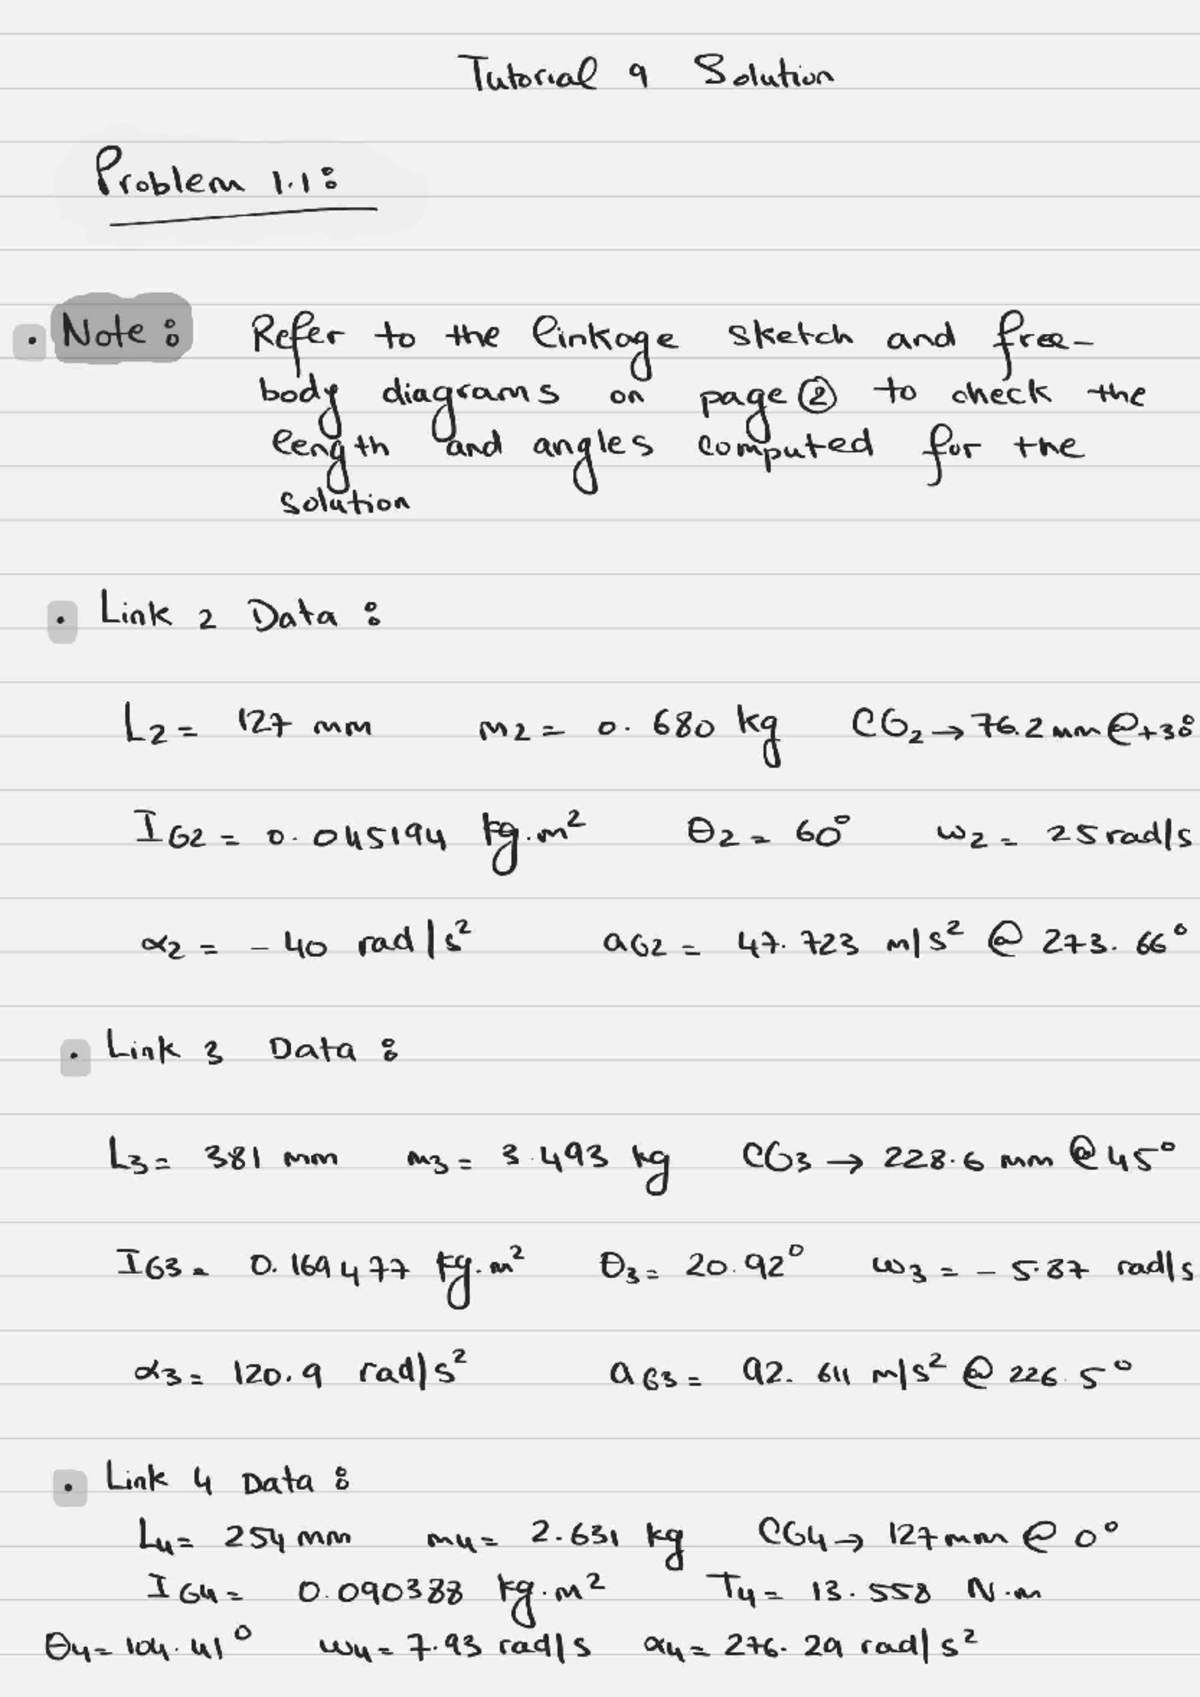 Tutorial 9 Solution
Problem 1.1:
• Note: Refer to the linkage sketch and free-
body diagrams on page ② to check the
length and angles computed for the
solution
• Link 2 Data:
L2 = 127 mm m2 = 0.680 kg CG2 → 76.2 mm @ +30°
IG2 = 0.045194 kg.m² θ2 = 60° ω2 = 25 rad/s
α2 = - 40 rad/s² aG2 = 47.723 m/s² @ 273.66°
• Link 3 Data:
L3 = 381 mm m3 = 3.493 kg CG3 → 228.6 mm @ 45°
IG3 = 0.169477 kg.m² θ3 = 20.92° ω3 = - 5.87 rad/s
α3 = 120.9 rad/s² aG3 = 92.611 m/s² @ 226.5°
• Link 4 Data:
L4 = 254 mm m4 = 2.631 kg CG4 → 127 mm @ 0°
IG4 = 0.090388 kg.m² T4 = 13.558 N.m
θ4 = 104.41° ω4 = 7.93 rad/s α4 = 276.29 rad/s²